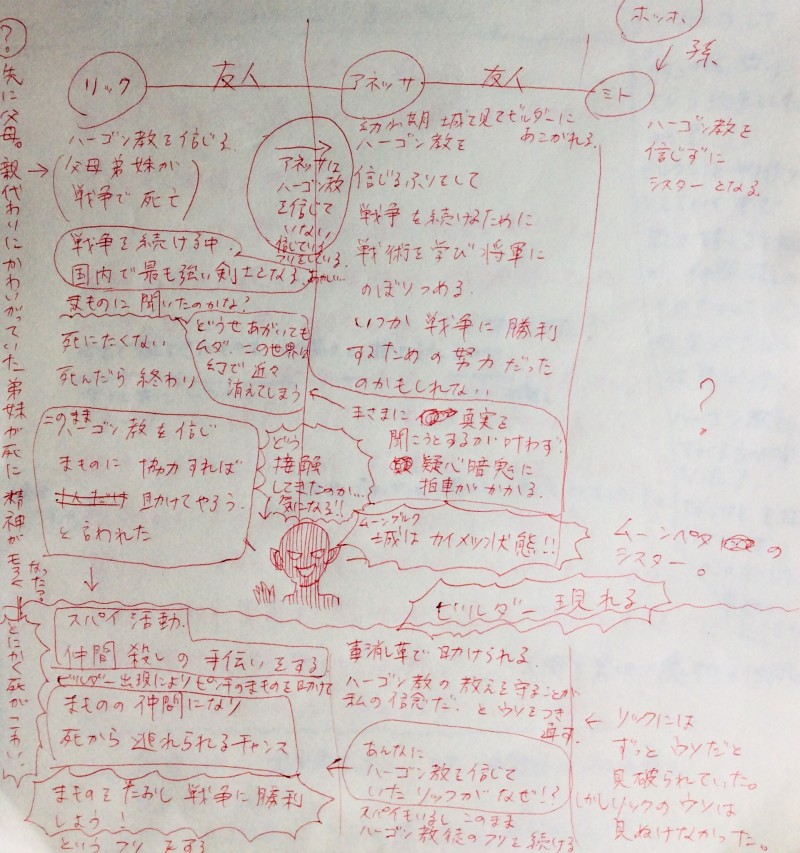 ホッホ
↓ 孫
リック
友人
アネッサ
友人
ミト
?
先に父母。親代わりにかわいがっていた弟妹が死に精神が
なった?
とにかく死が
ハーゴン教を信じる。
→ 父母弟妹が
戦争で死亡
戦争を続ける中、
国内で最も強い剣士となる。
まものに聞いたのかな?
死にたくない
死んだら終わり
どうせあがいても
ムダ。この世界は
幻で近々
消えてしまう
このまま
ハーゴン教を信じ
まものに協力すれば
助けてやろう。
と言われた
→
アネッサは
ハーゴン教
を信じて
いない
信じている
フリをしている。
幼少期 城を見てビルダーに
あこがれる。
ハーゴン教を
信じるふりをして
戦争を続けるために
戦術を学び将軍に
のぼりつめる。
いつか戦争に勝利
するための努力だった
のかもしれない
←
王さまに 真実を
聞こうとするが叶わず
疑心暗鬼に
拍車がかかる。
どう
接触
してきたのか…
気になる!!
ムーンブルク
城はカイメツ状態!!
ハーゴン教を
信じずに
シスターとなる。
?
ムーンペタ の
シスター。
ビルダー 現れる
↓
スパイ活動。
仲間殺しの手伝いをする
ビルダー出現によりピンチのまものを助けて
まものの仲間になり
死から逃れられるチャンス
まものをたおし戦争に勝利
しよう!
というフリをする
草で助けられる。
ハーゴン教の教えを守ることが
私の信念だ。とウソをつき
通す。
あんなに
ハーゴン教を信じて
いたリックがなぜ!?
←
スパイもいるし このまま
ハーゴン教徒のフリを続ける
← リックには
ずっとウソだと
見破られていた。
しかしリックのウソは
見ぬけなかった。